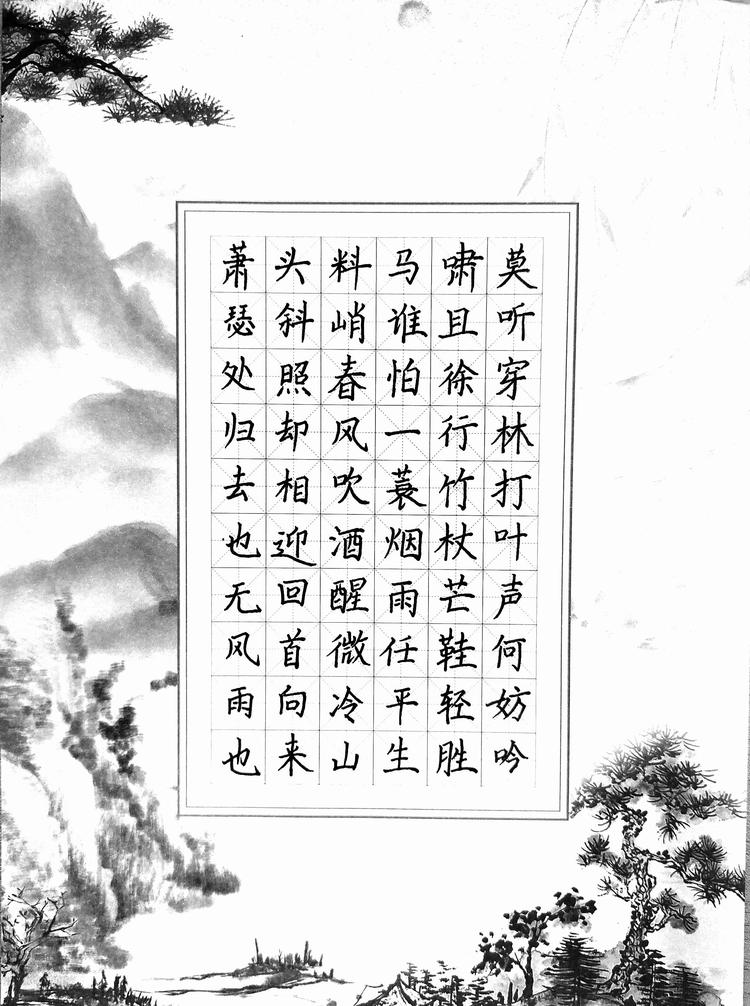 莫听穿林打叶声何妨吟
啸且徐行竹杖芒鞋轻胜
马谁怕一蓑烟雨任平生
料峭春风吹酒醒微冷山
头斜照却相迎回首向来
萧瑟处归去也无风雨也